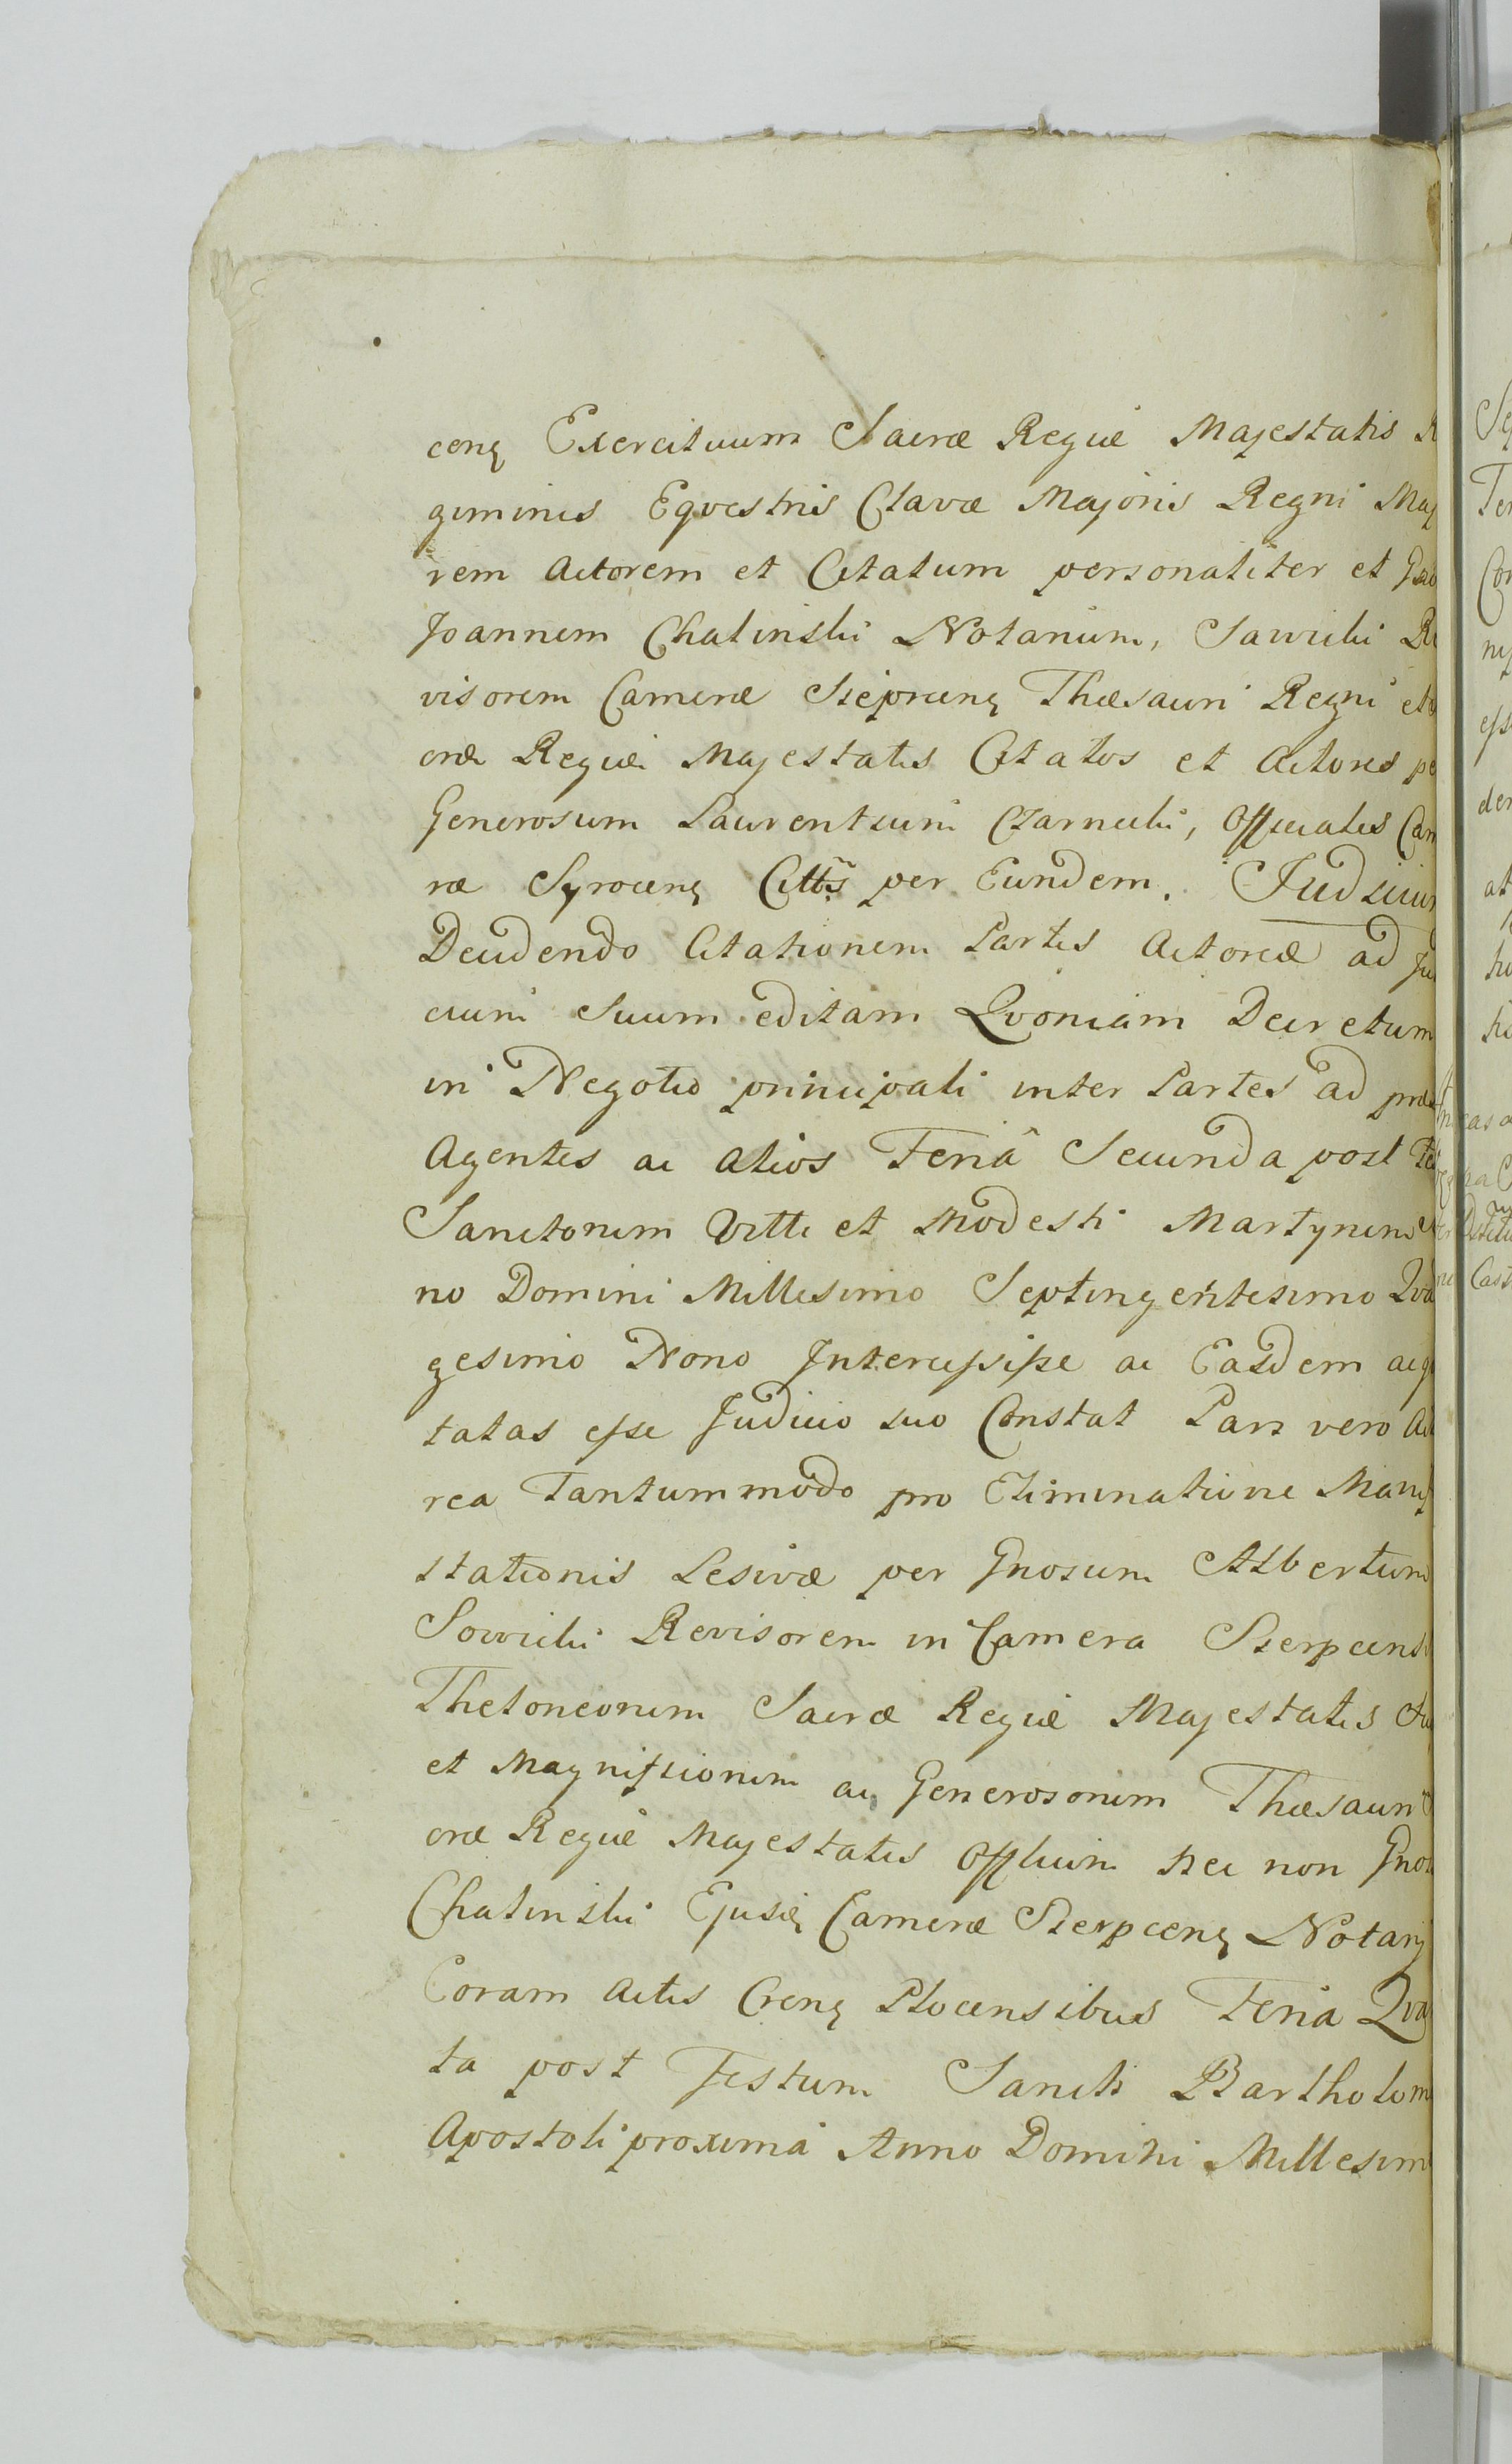 cenꝫ Exercituum Sacræ Regiæ Majestatis R
giminis Eqvestris Clavæ Majoris Regni Maj
rem Actorem et Citatum personaliter et Gno
Joannem Chalinski Notarium, Sawicki Re
visorem Cameræ Sieprcenꝫ Thæsauri Regni et
cræ Regiæ Majestatis Citatos et Actores pe
Generosum Laurentium Czarnecki, Officiales Cam
ræ Syrocenꝫ Citt̃s per Eundem. Judicium
Decidendo Citationem Partis Actoreæ ad Ju
cium Suum editam Qvoniam Decretum
in Negotio principali inter Partes ad præs
Agentes ac alios Feriâ Secunda post Fes
Sanctorum Vitti et Modesti Martyrum
no Domini Millesimo Septingentesimo Qva
gesimo Nono Intercessisse ac Easdem acqi
tatas esse Judicio suo Constat Pars vero Ac
rea Tantummodo pro Eliminatione Manif
stationis Lesivæ per Gnosum Albertum
Sowicki Revisorem in Camera Sierpcensi
Theloneorum Sacræ Regiæ Majestatis
et Magnificorum ac Generosorum Thæsauri
cræ Regiæ Majestatis Offlium nec non Gnos
Chalinski Ejusdꝫ Cameræ Sierpcenꝫ Notarij
Coram Actis Crenꝫ Plocensibus Feria Qvar
ta post Festum Sancti Bartholom
Apostoli proximâ Anno Domini Millesim